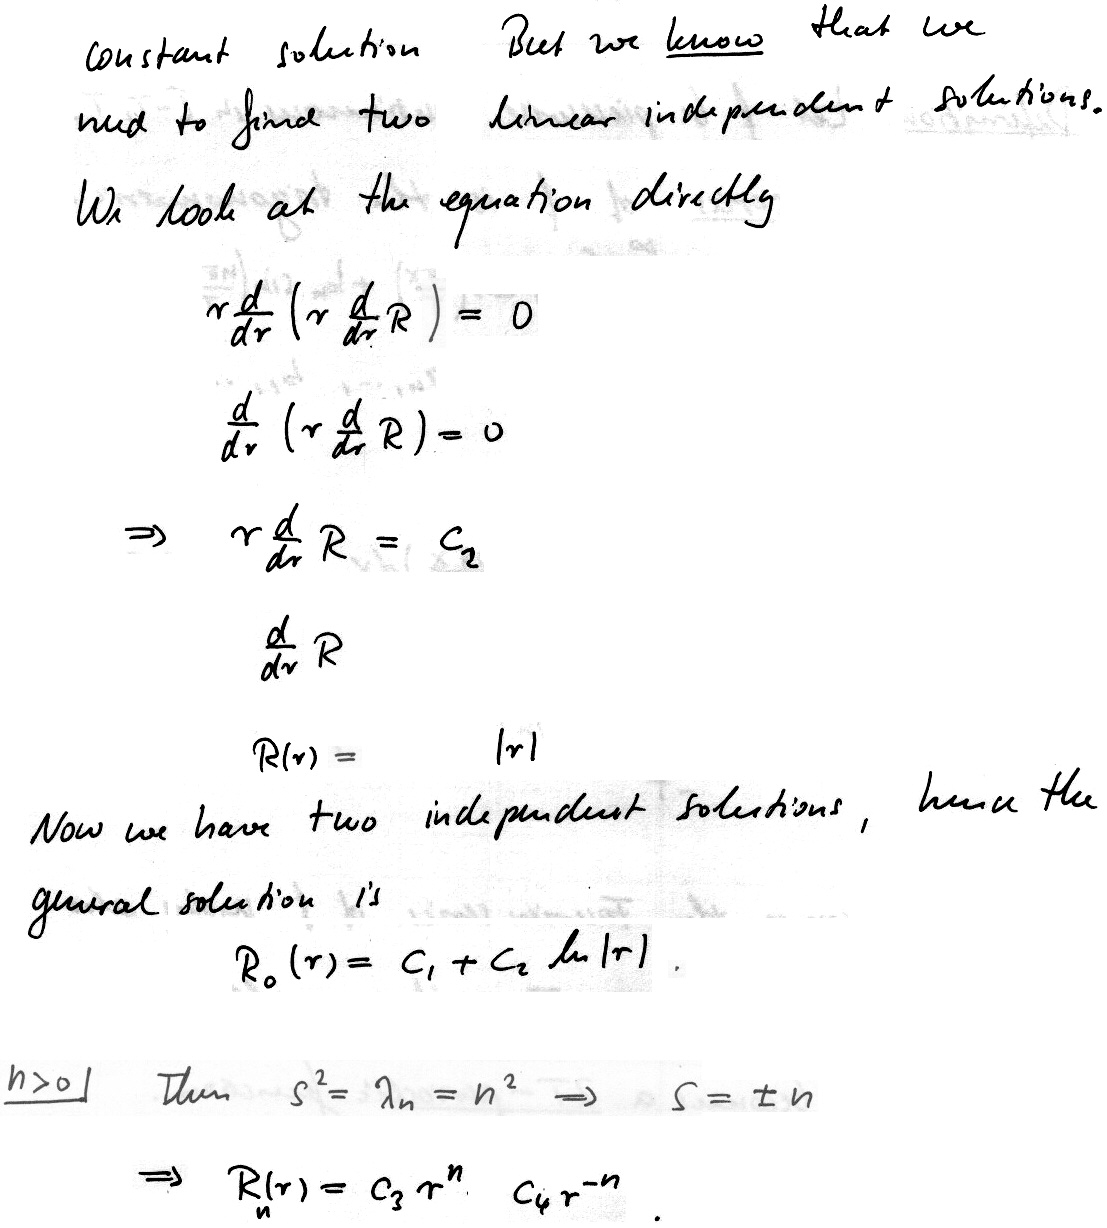 constant solution But we know that we
need to find two linear independent solutions.
We look at the equation directly
r d/dr (r d/dr R) = 0
d/dr (r d/dr R) = 0
⇒ r d/dr R = C₂
d/dr R
R(r) = |r|
Now we have two independent solutions, hence the
general solution is
R₀(r) = C₁ + C₂ ln|r|.
n>0 Then s² = λₙ = n² ⇒ s = ± n
⇒ Rₙ(r) = C₃ rⁿ C₄ r⁻ⁿ.